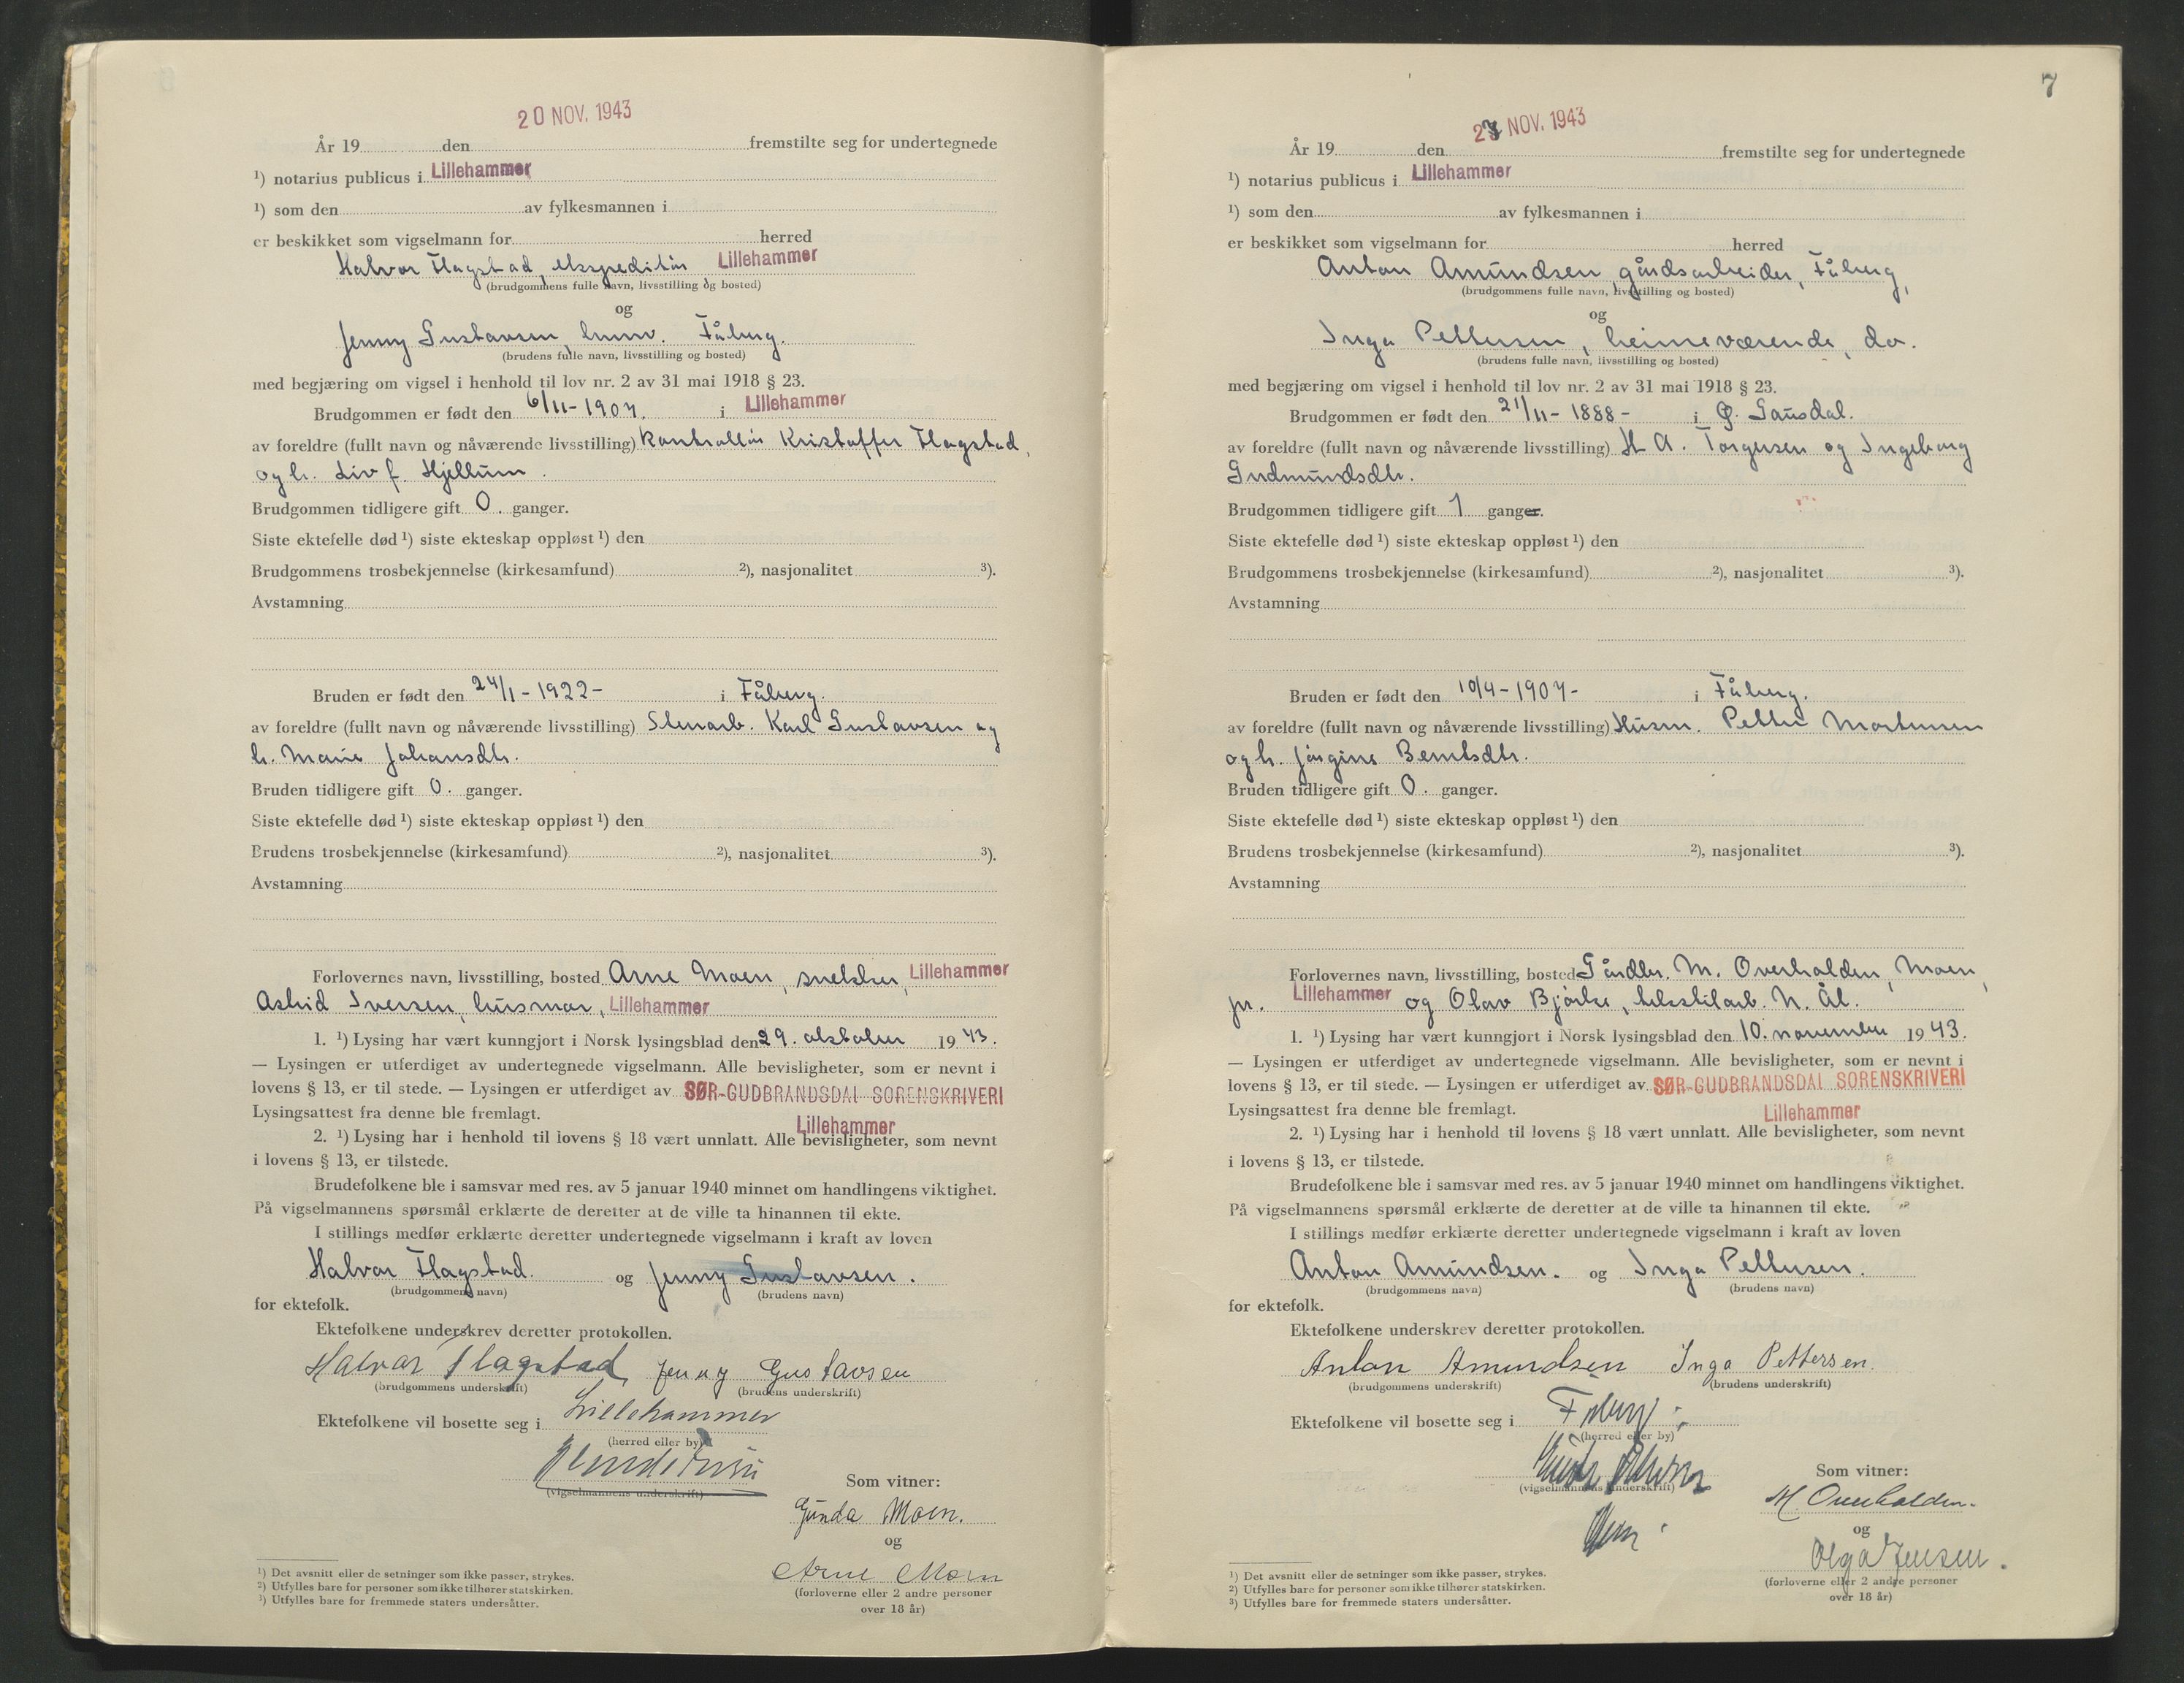 20 NOV. 1943
År 19 den fremstilte seg for undertegnede
¹) notarius publicus i Lillehammer
¹) som den av fylkesmannen i
er beskikket som vigselmann for herred
Halvor Flagstad, ekspeditør Lillehammer
(brudgommens fulle navn, livsstilling og bosted)
og
Jenny Gustavsen, Fåberg.
(brudens fulle navn, livsstilling og bosted)
med begjæring om vigsel i henhold til lov nr. 2 av 31 mai 1918 § 23.
Brudgommen er født den 6/11-1907. i Lillehammer
av foreldre (fullt navn og nåværende livsstilling) kontrollør Kristoffer Flagstad,
og h. Liv f. Hjellum.
Brudgommen tidligere gift 0. ganger.
Siste ektefelle død ¹) siste ekteskap oppløst ¹) den
Brudgommens trosbekjennelse (kirkesamfund) ²), nasjonalitet ³).
Avstamning
Bruden er født den 24/1-1922- i Fåberg.
av foreldre (fullt navn og nåværende livsstilling) Stenarb. Karl Gustavsen og
h. Marie Johansdtr.
Bruden tidligere gift 0. ganger.
Siste ektefelle død ¹) siste ekteskap oppløst ¹) den
Brudens trosbekjennelse (kirkesamfund) ²), nasjonalitet ³).
Avstamning
Forlovernes navn, livsstilling, bosted Arne Moen, snekker, Lillehammer
Astrid Iversen, husmor, Lillehammer
1. ¹) Lysing har vært kunngjort i Norsk lysingsblad den 29. oktober 1943.
— Lysingen er utferdiget av undertegnede vigselmann. Alle bevisligheter, som er nevnt i
lovens § 13, er til stede. — Lysingen er utferdiget av SØR-GUDBRANDSDAL SORENSKRIVERI
Lysingsattest fra denne ble fremlagt. Lillehammer
2. ¹) Lysing har i henhold til lovens § 18 vært unnlatt. Alle bevisligheter, som nevnt
i lovens § 13, er tilstede.
Brudefolkene ble i samsvar med res. av 5 januar 1940 minnet om handlingens viktighet.
På vigselmannens spørsmål erklærte de deretter at de ville ta hinannen til ekte.
I stillings medfør erklærte deretter undertegnede vigselmann i kraft av loven
Halvor Flagstad. og Jenny Gustavsen.
(brudgommens navn) (brudens navn)
for ektefolk.
Ektefolkene underskrev deretter protokollen.
Halvor Flagstad Jenny Gustavsen
(brudgommens underskrift) (brudens underskrift)
Ektefolkene vil bosette seg i Lillehammer
(herred eller by)
(vigselmannens underskrift)
Som vitner:
Gunda Moen.
og
Arne Moen
(forloverne eller 2 andre personer
over 18 år)
¹) Det avsnitt eller de setninger som ikke passer, strykes.
²) Utfylles bare for personer som ikke tilhører statskirken.
³) Utfylles bare for fremmede staters undersåtter.
7
27 NOV. 1943
År 19 den fremstilte seg for undertegnede
¹) notarius publicus i Lillehammer
¹) som den av fylkesmannen i
er beskikket som vigselmann for herred
Anton Amundsen, gårdsarbeider, Fåberg,
(brudgommens fulle navn, livsstilling og bosted)
og
Inga Pettersen, heimeværende, do.
(brudens fulle navn, livsstilling og bosted)
med begjæring om vigsel i henhold til lov nr. 2 av 31 mai 1918 § 23.
Brudgommen er født den 21/11-1888- i Ø. Gausdal.
av foreldre (fullt navn og nåværende livsstilling) H A. Torgersen og Ingeborg
Gudmundsdtr.
Brudgommen tidligere gift 1 ganger.
Siste ektefelle død ¹) siste ekteskap oppløst ¹) den
Brudgommens trosbekjennelse (kirkesamfund) ²), nasjonalitet ³).
Avstamning
Bruden er født den 10/4-1907- i Fåberg.
av foreldre (fullt navn og nåværende livsstilling) Husm. Petter Mortensen
og h. Jørgine Berntsdtr.
Bruden tidligere gift 0. ganger.
Siste ektefelle død ¹) siste ekteskap oppløst ¹) den
Brudens trosbekjennelse (kirkesamfund) ²), nasjonalitet ³).
Avstamning
Forlovernes navn, livsstilling, bosted Gårdbr. M. Overhalden, Moen,
pr. Lillehammer og Olav Bjørke, tekstilarb. N. Ål.
1. ¹) Lysing har vært kunngjort i Norsk lysingsblad den 10. november 1943.
— Lysingen er utferdiget av undertegnede vigselmann. Alle bevisligheter, som er nevnt i
lovens § 13, er til stede. — Lysingen er utferdiget av SØR-GUDBRANDSDAL SORENSKRIVERI
Lysingsattest fra denne ble fremlagt. Lillehammer
2. ¹) Lysing har i henhold til lovens § 18 vært unnlatt. Alle bevisligheter, som nevnt
i lovens § 13, er tilstede.
Brudefolkene ble i samsvar med res. av 5 januar 1940 minnet om handlingens viktighet.
På vigselmannens spørsmål erklærte de deretter at de ville ta hinannen til ekte.
I stillings medfør erklærte deretter undertegnede vigselmann i kraft av loven
Anton Amundsen. og Inga Pettersen.
(brudgommens navn) (brudens navn)
for ektefolk.
Ektefolkene underskrev deretter protokollen.
Anton Amundsen Inga Pettersen.
(brudgommens underskrift) (brudens underskrift)
Ektefolkene vil bosette seg i Fåberg
(herred eller by)
(vigselmannens underskrift)
Som vitner:
M Overhalden.
og
Olga Jensen.
(forloverne eller 2 andre personer
over 18 år)
¹) Det avsnitt eller de setninger som ikke passer, strykes.
²) Utfylles bare for personer som ikke tilhører statskirken.
³) Utfylles bare for fremmede staters undersåtter.